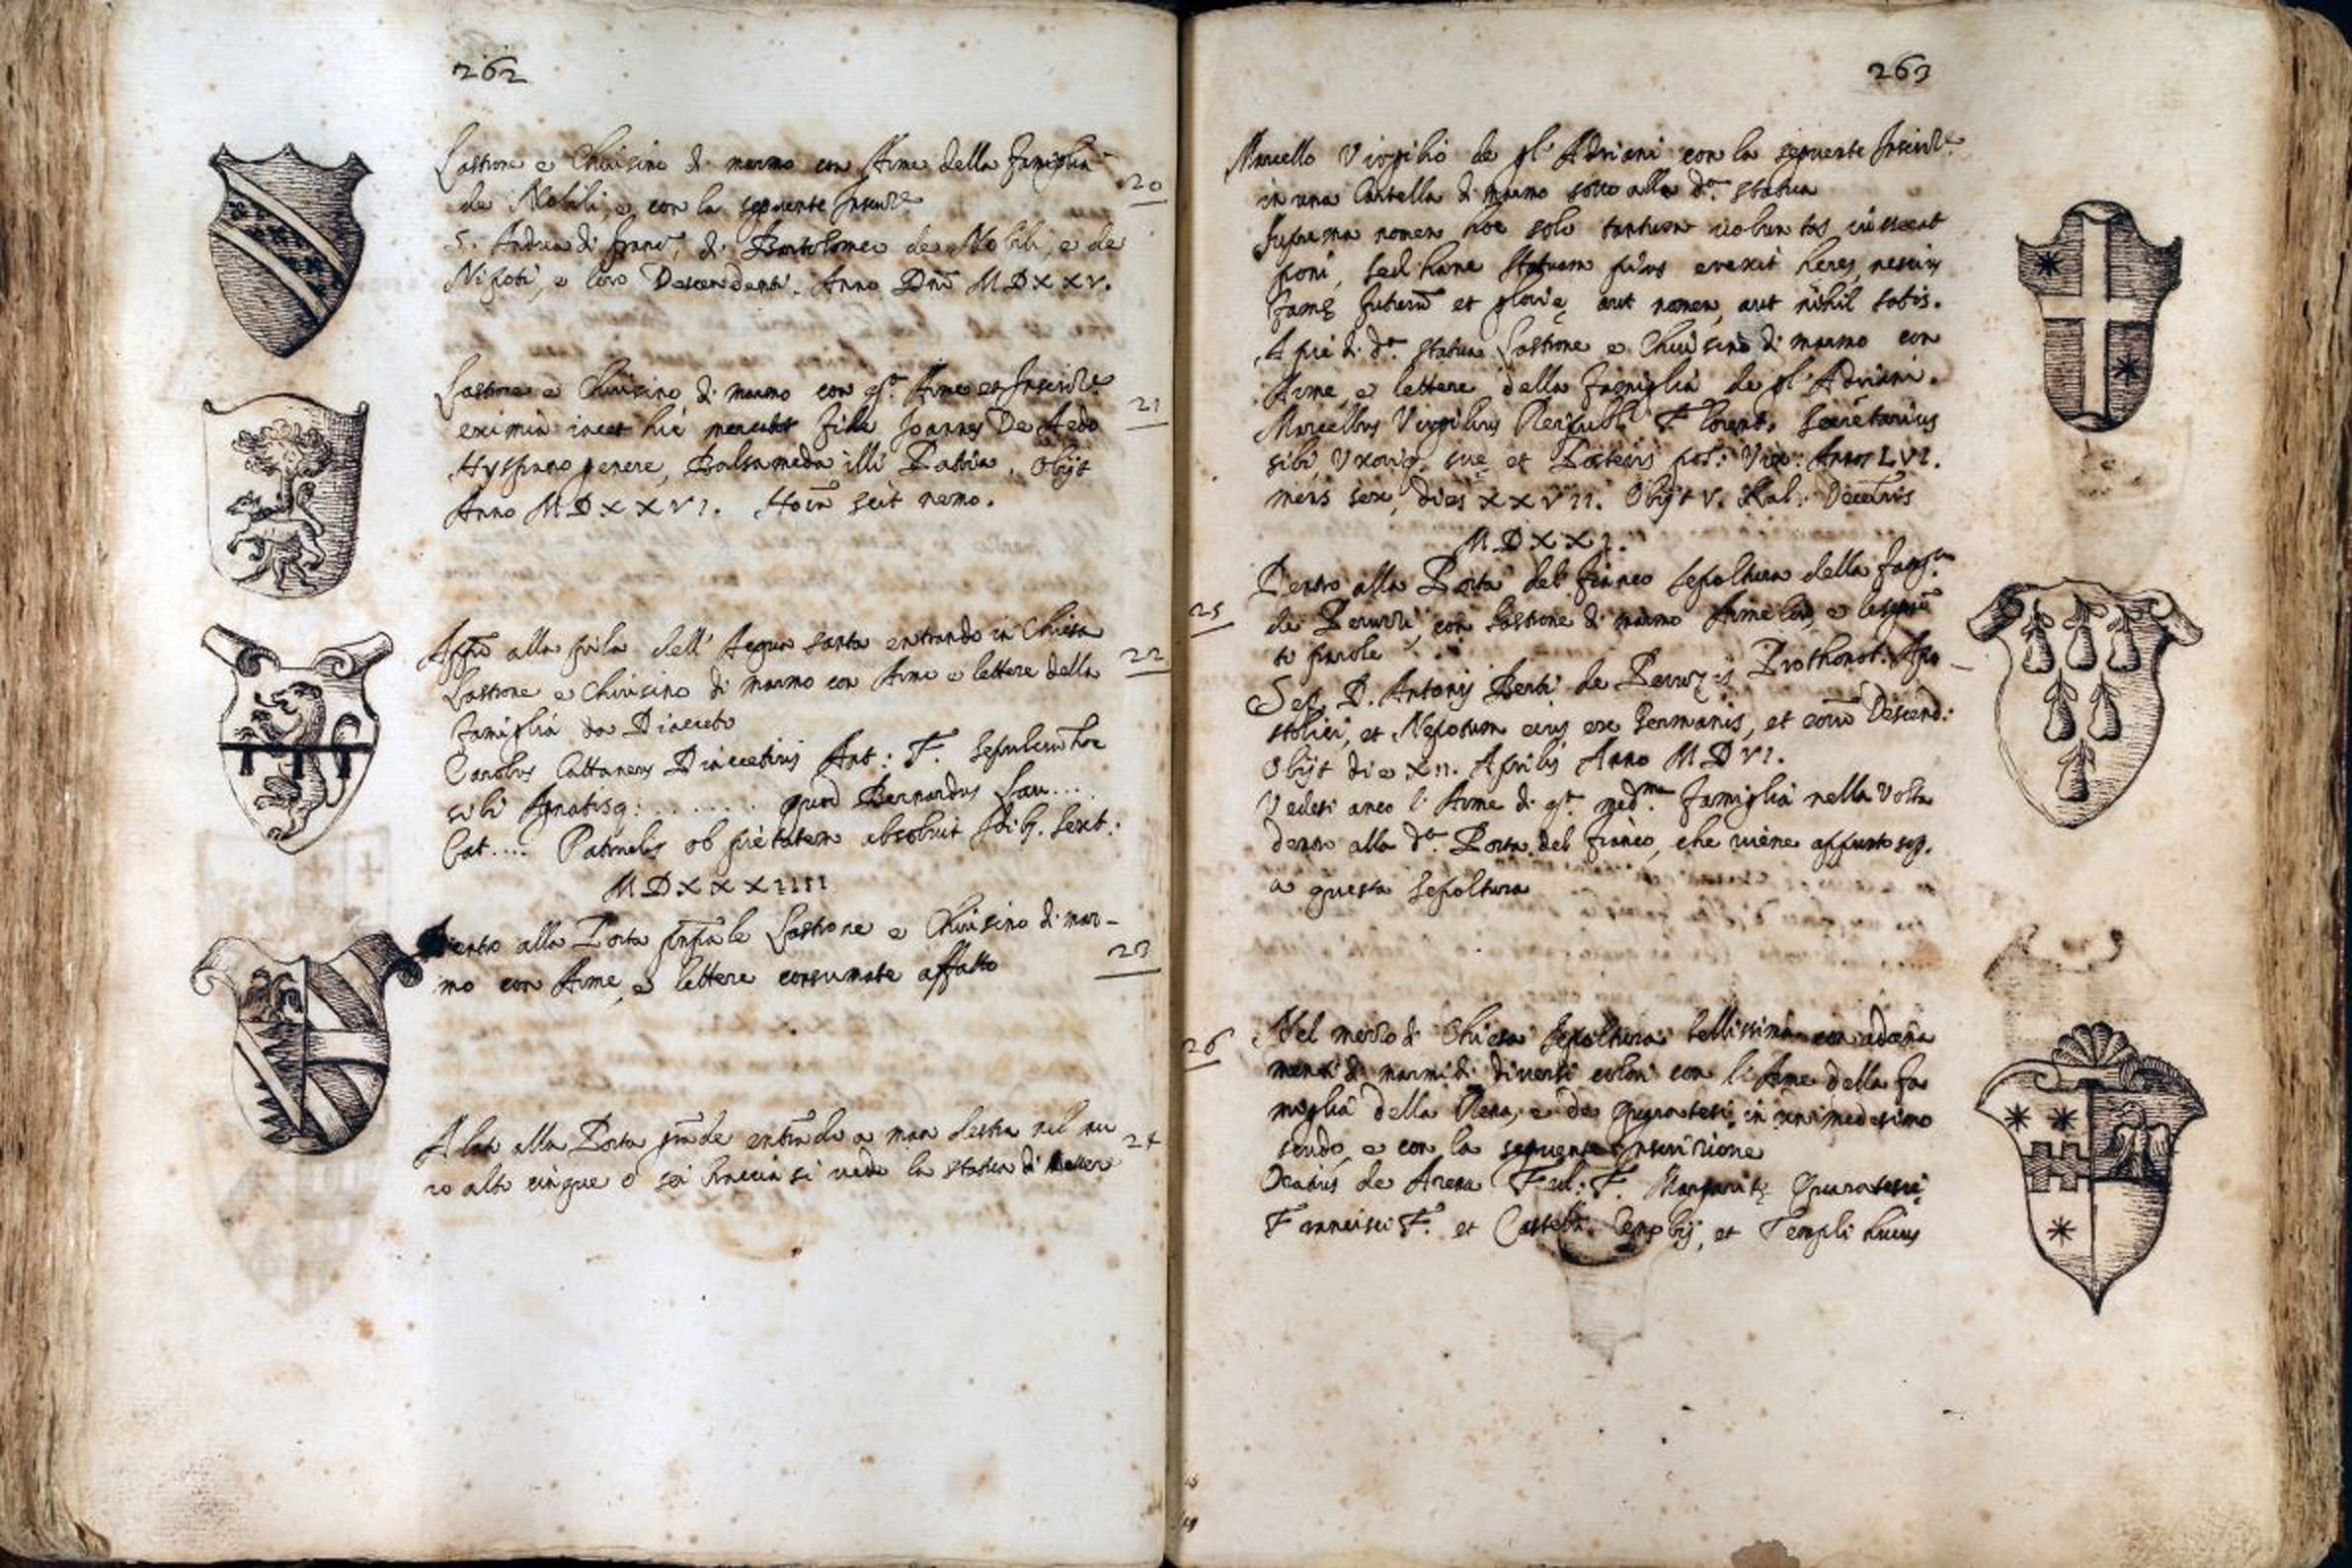 262
Lastrone e Chiusino di marmo con Arme della famiglia
de Nobili, e con la seguente Inscrize
20
S. Andrea di Franc. di Bartolomeo de Nobili, e de
Nipoti, e loro Descendenti. Anno Dni MDXXV.
Lastrone e Chiusino di marmo con qta Arme et Inscrize
21
eximia iacet hic fide Joannes De Aedo
Hyspano genere, Balsameda illi Patria. Obijt
Anno MDXXVI. Hoīn scit nemo.
alla pila dell' Acqua santa entrando in Chiesa
22
Lastrone e Chiusino di marmo con Arme e lettere della
famiglia da Diacceto
Carolus Cattaneus Diaccetius Ant: F. sepulcru hoc
sibi Agnatisq: ........ quod Bernardus Lau....
Cat.... Patruelis ob pietatem absolvit Sext:
MDXXXIIII
Dentro alla Porta Lastrone e Chiusino di mar-
23
mo con Arme, e lettere consumate affatto
A lato alla Porta grāde entrādo a man destra nel mu
24
ro alto cinque o sei braccia si vede la statua di Messer
263
Marcello Virgilio de gl' Adriani con la seguente Inscrize
in una Cartella di marmo sotto alla da statua
Suprema nomen hoc solo tantum voluntas iusserat
poni, sed hanc statuam pius erexit heres, nescius
famę futurū et glorię aut nomen, aut nihil satis.
A piè di da statua Lastrone e Chiusino di marmo con
Arme, e lettere della famiglia de gl' Adriani.
Marcellus Virgilius Reipubl. Florent. Secretarius
sibi, Uxoriq. suę et Posteris pos: Vix: Annos LVI.
mens sex, dies XXVII. Obijt V. Kal: Decembris
MDXXI.
Dentro alla Porta del fianco sepoltura della famga
25
de Peruzzi con Lastrone di marmo Arme loro, e le seguen
ti parole
Sep. D. Antonij Berti de Peruzzis Prothonot: Apo-
stolici, et Nepotum eius ex Germanis, et eorū Descend:
Obijt die XII. Aprilis Anno MDVI.
Vedesi anco l' Arme di qta medma famiglia nella volta
dentro alla da Porta del fianco, che viene appunto sop.
a questa sepoltura
26
Nel mezzo di Chiesa sepoltura bellissima con adorna
menti di marmi di diversi colori con l' Arme della fa
miglia della Rena, e de Quaratesi in un medesimo
scudo, e con la seguente Inscrizione
de Arena Ful: F. Margaritę Quaratesię
Francisci F. et Castello et Templi huius